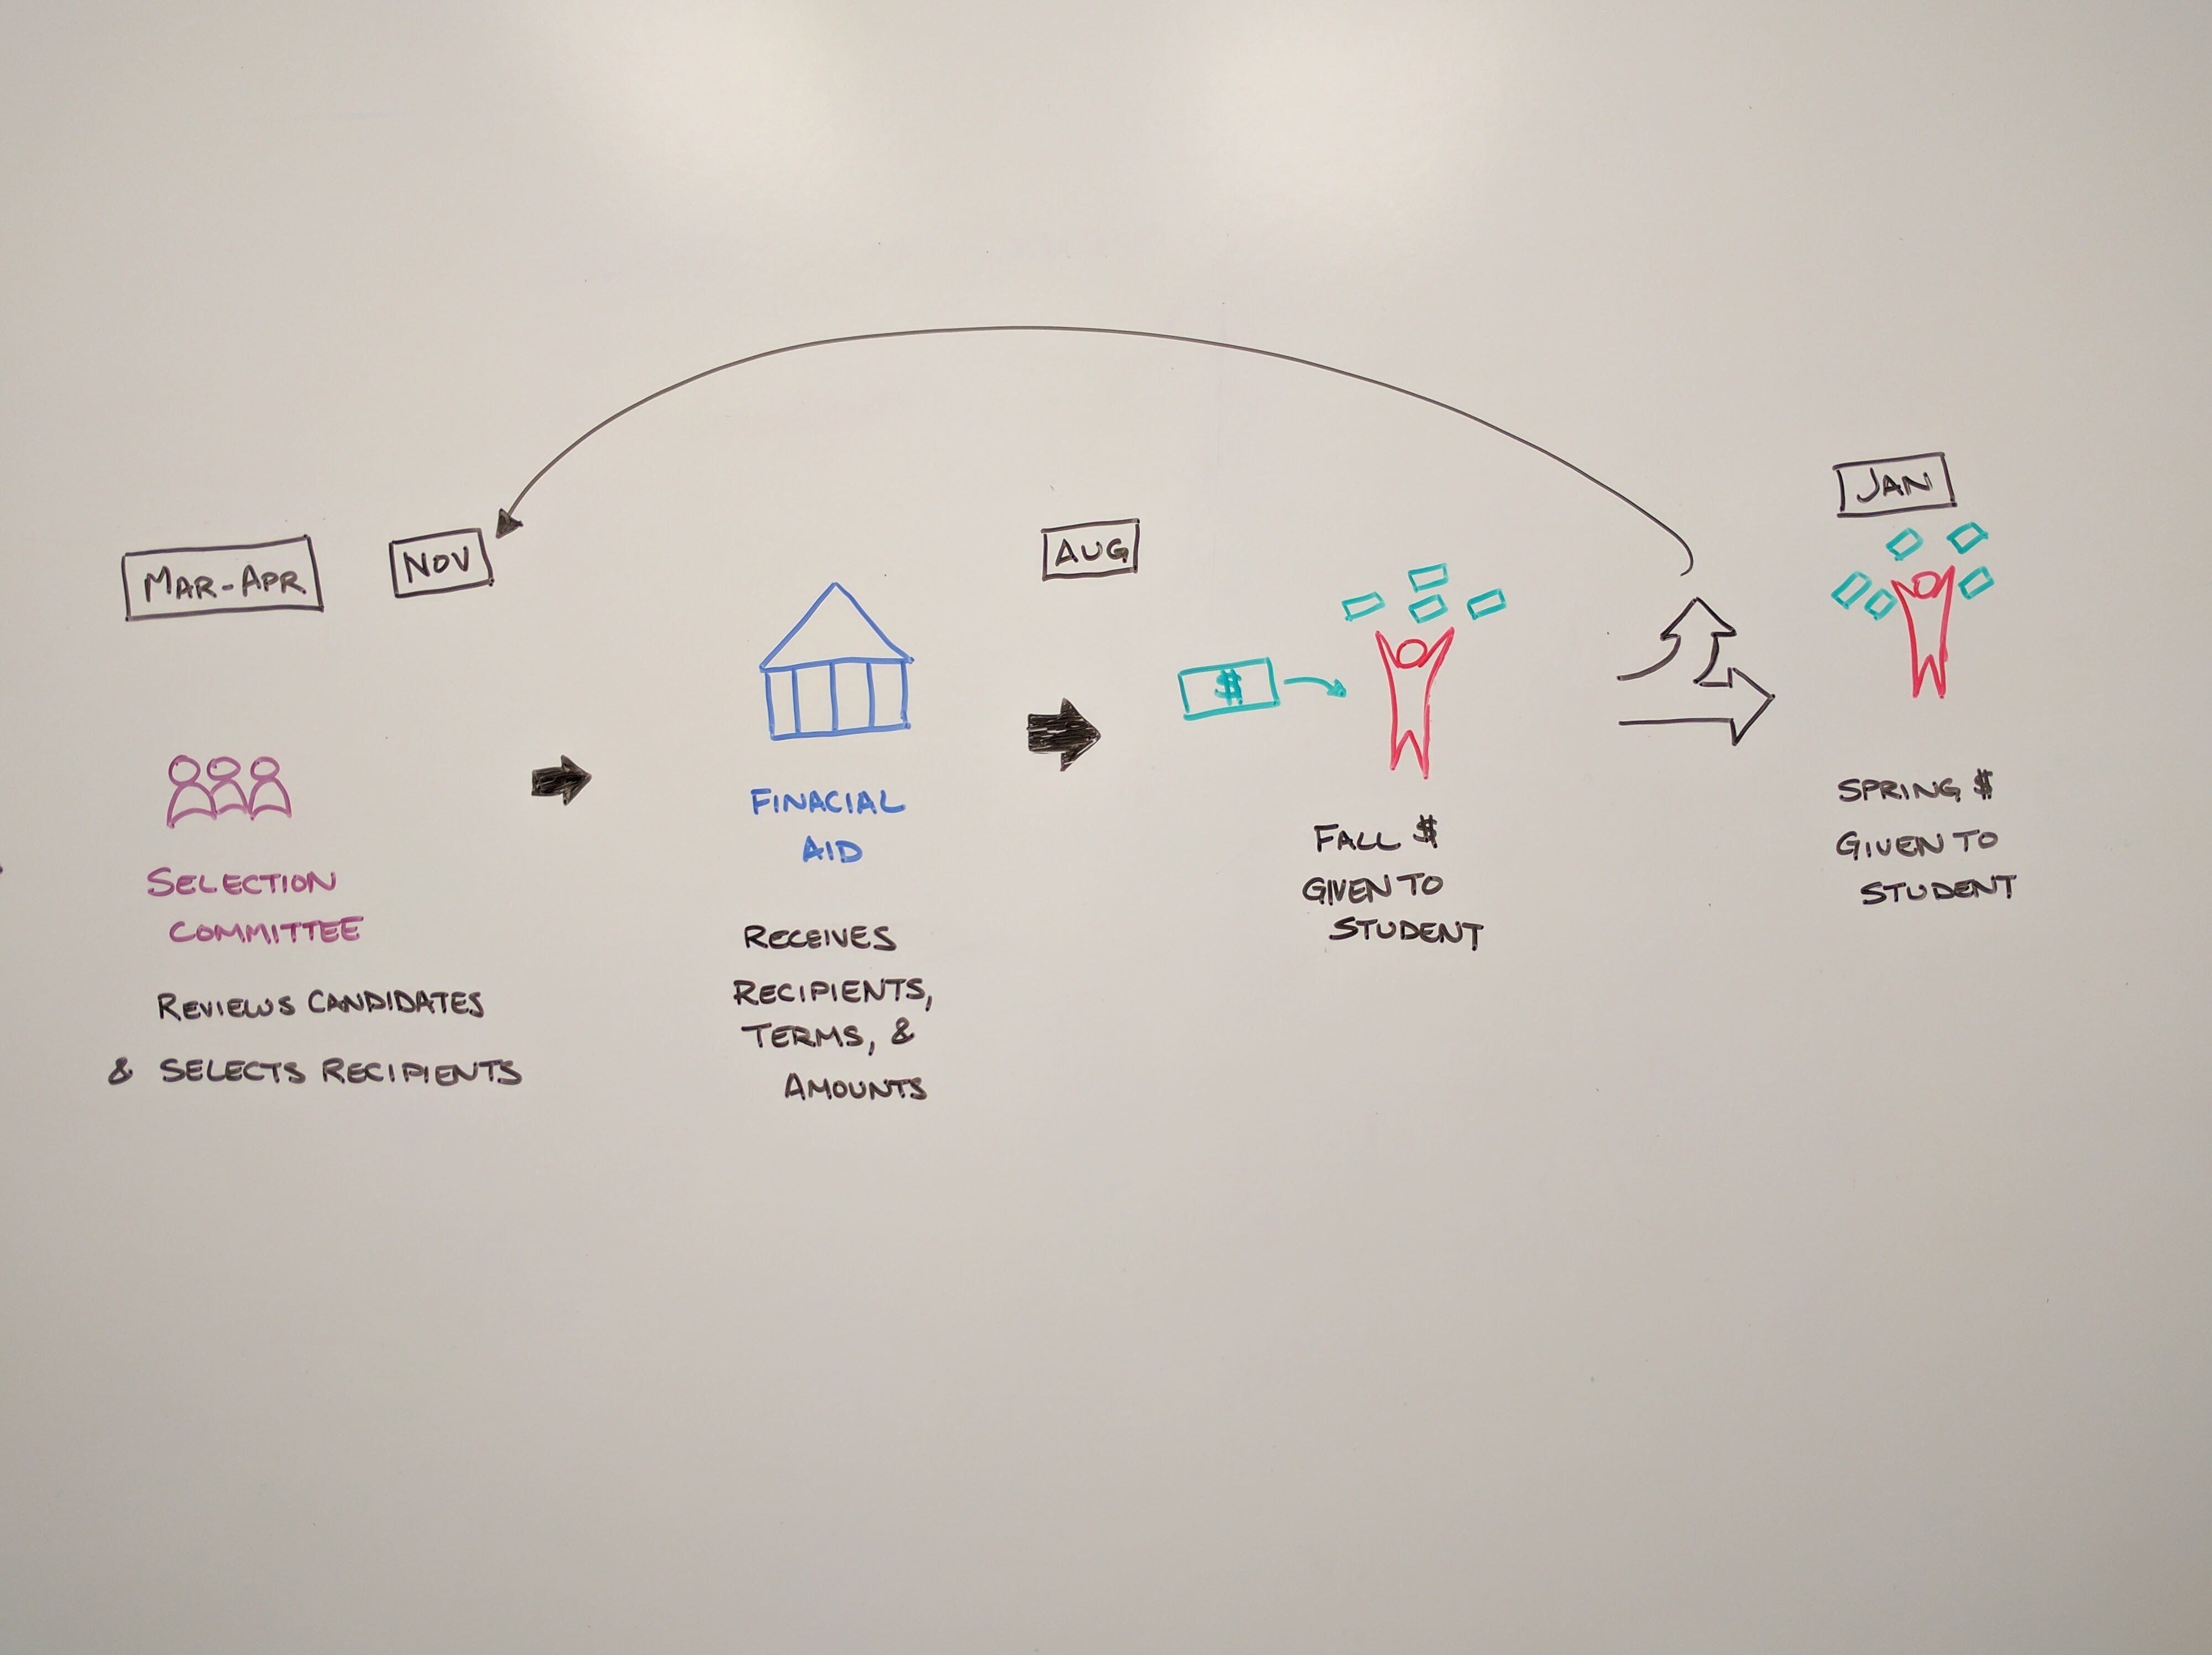 MAR-APR
NOV
SELECTION
COMMITTEE
REVIEWS CANDIDATES
& SELECTS RECIPIENTS
FINACIAL
AID
RECEIVES
RECIPIENTS,
TERMS, &
AMOUNTS
AUG
$
FALL $
GIVEN TO
STUDENT
JAN
SPRING $
GIVEN TO
STUDENT